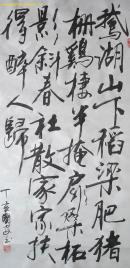 鵝湖山下稻粱肥猪
柵鷄棲半掩扉桑柘
影斜春社散家家扶
得醉人歸
丁亥